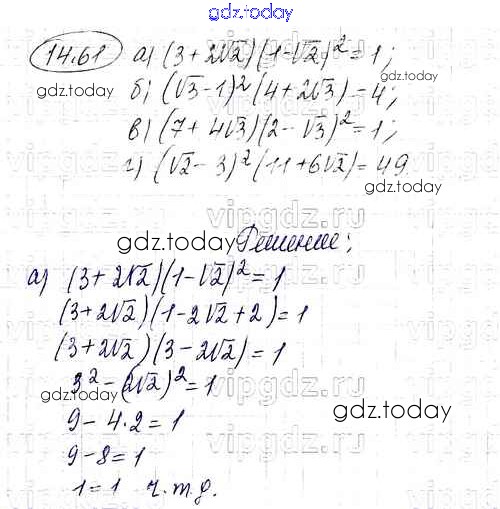 gdz.today
14.61 а) (3+2√2)(1-√2)²=1;
gdz.today
б) (√3-1)²(4+2√3)=4;
в) (7+4√3)(2-√3)²=1;
г) (√2-3)²(11+6√2)=49.
gdz.today
vipgdz.ru
gdz.today
Решение;
а) (3+2√2)(1-√2)²=1
(3+2√2)(1-2√2+2)=1
(3+2√2)(3-2√2)=1
3²-(2√2)²=1
gdz.today
9-4·2=1
gdz.today
9-8=1
1=1 ч.т.д.